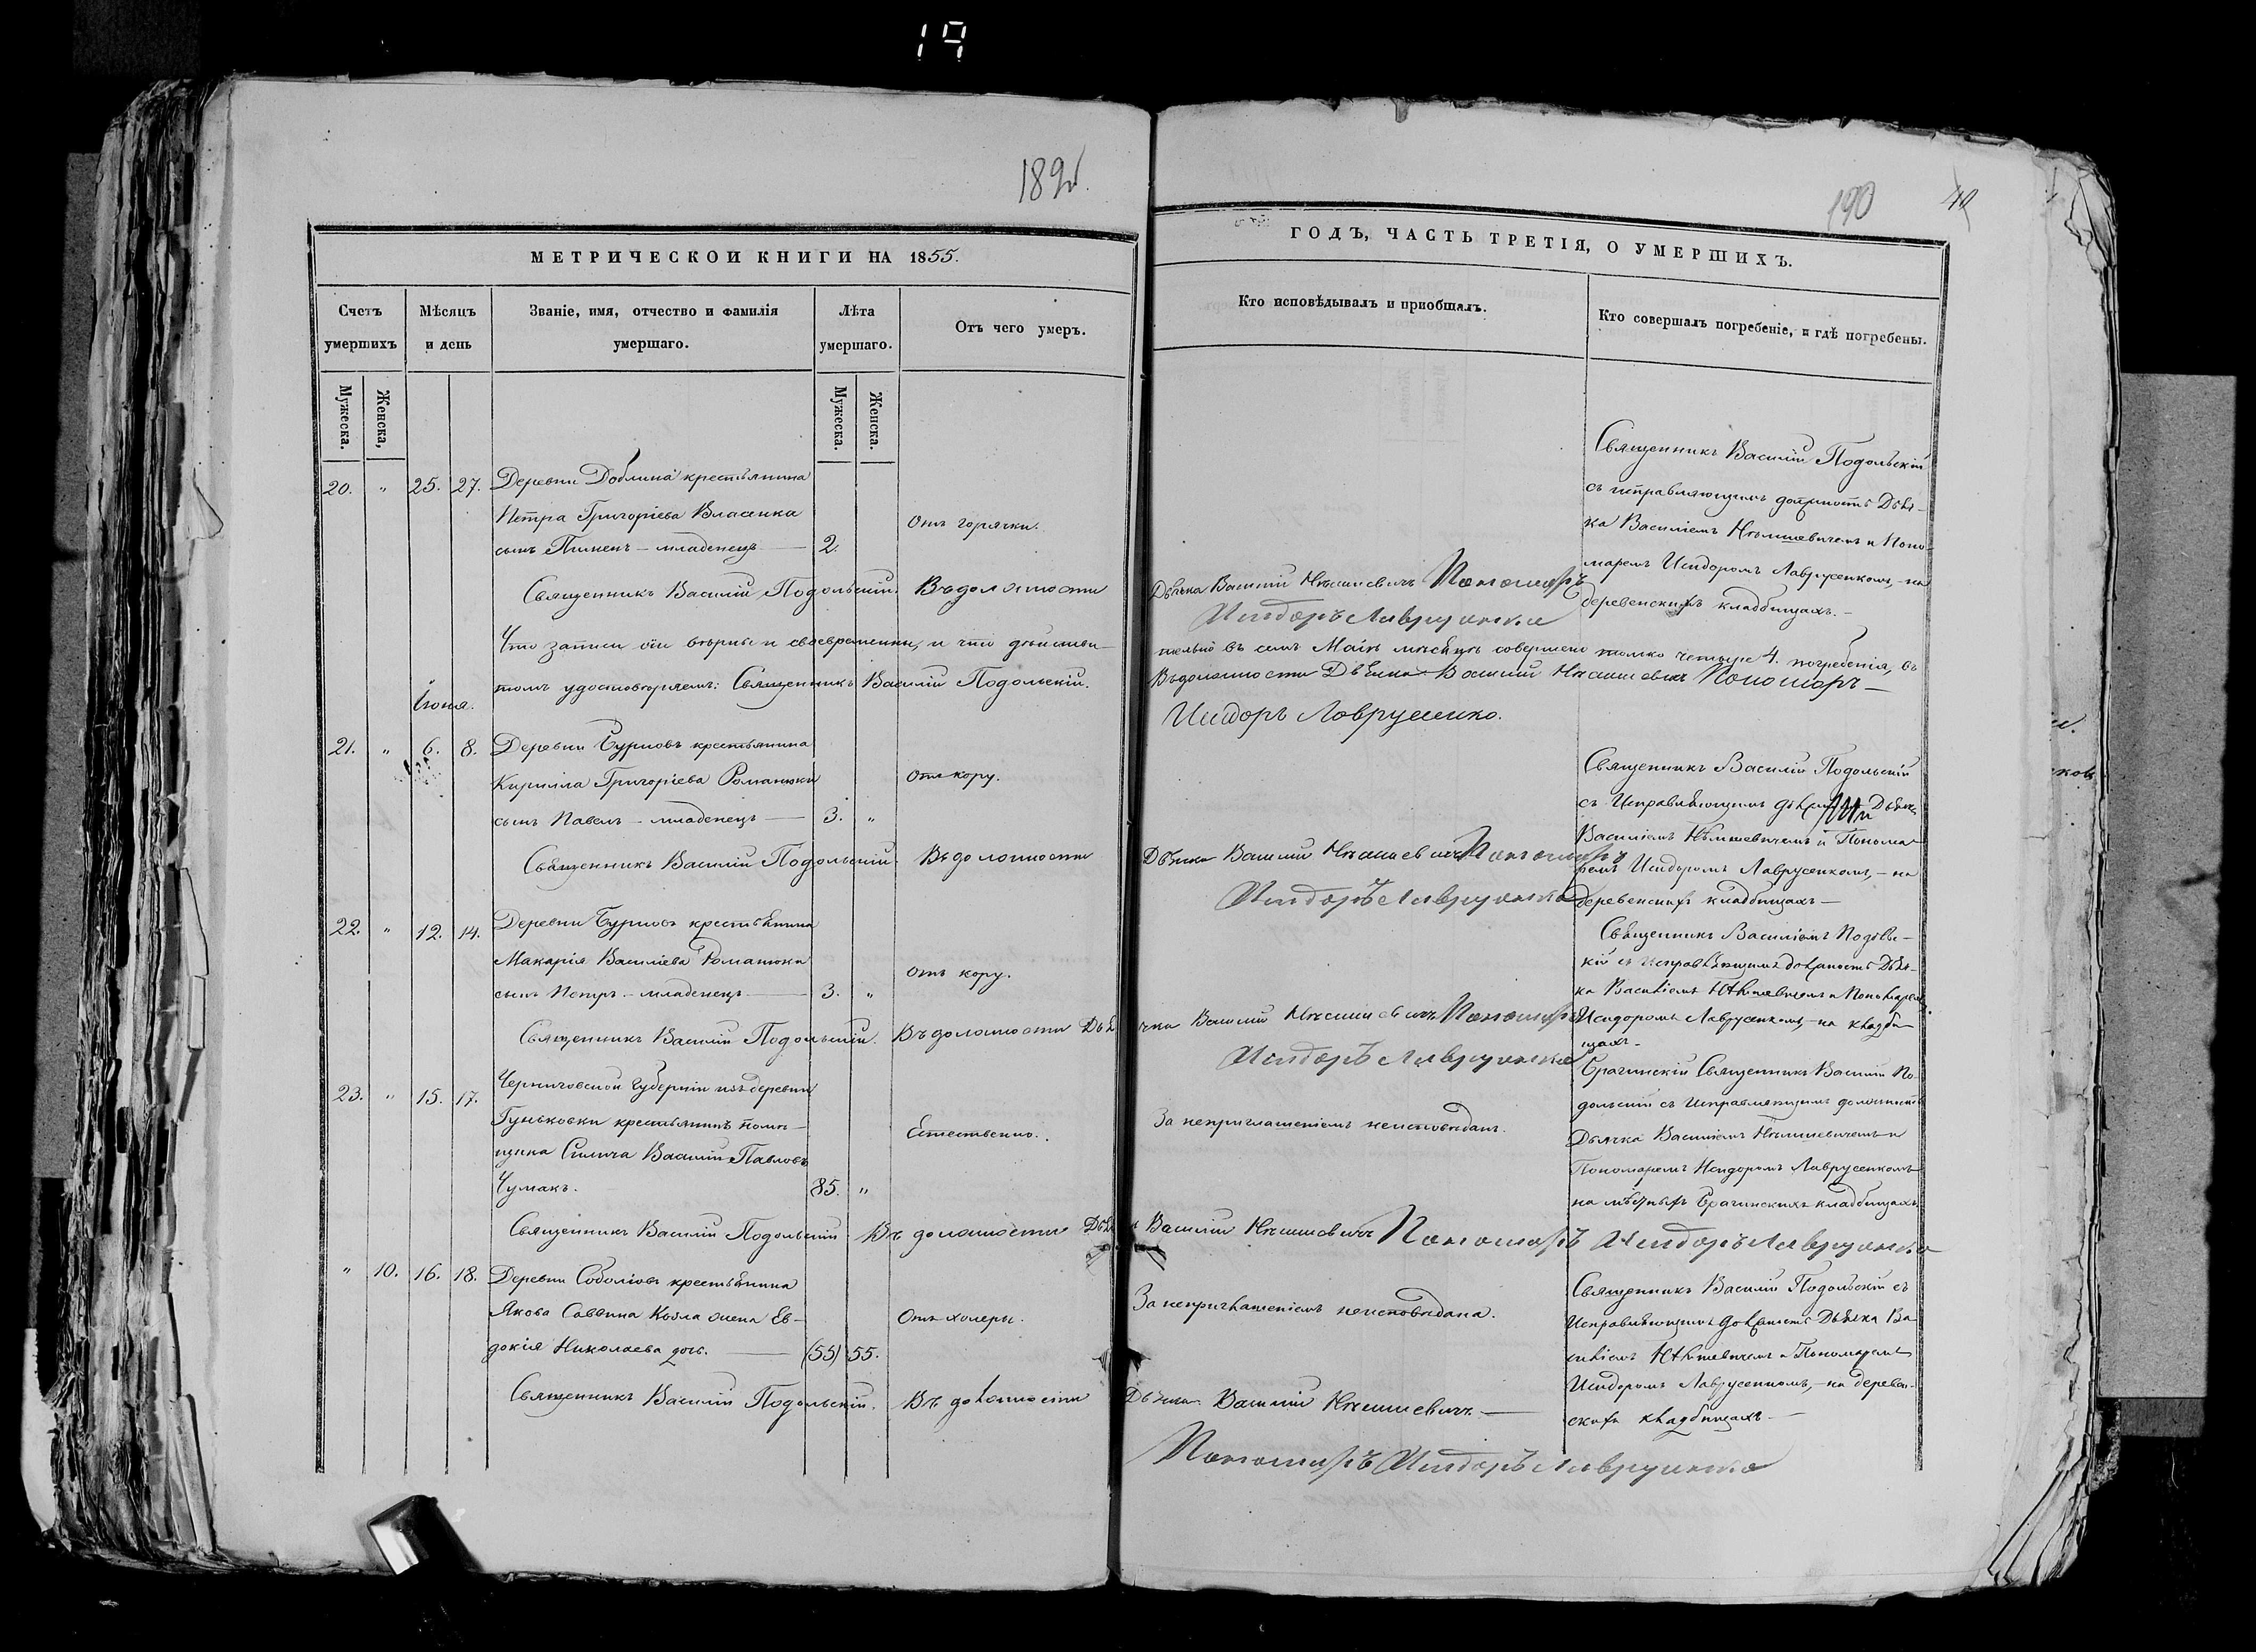 19
189об.
МЕТРИЧЕСКОЙ КНИГИ НА 1855.
Счетъ умершихъ
Мѣсяцъ и день
Званіе, имя, отчество и фамилія умершаго.
Лѣта умершаго.
Отъ чего умеръ.
Мужеска.
Женска,
Мужеска.
Женска.
20. " 25. 27. Деревни Доблина крестьянина
Петра Григоріева Власенка
Отъ горячки.
сынъ Пименъ – младенецъ — 2.
Священникъ Василій Подольскій. Въ должности
Что записи сіи вѣрны и своевременны, и что дѣйстви–
томъ удостовѣряемъ: Священникъ Василій Подольскій.
Іюня.
21. " 6. 8. Деревни крестьянина
Кирилла Григоріева Романюки
Отъ кору.
сынъ Павелъ – младенецъ — 3. "
Священникъ Василій Подольскій. Въ должности
22. " 12. 14. Деревни крестьянина
Макарія Василіева Романюка
Отъ кору.
сынъ Петръ – младенецъ — 3. "
Священникъ Василій Подольскій. Въ должности Дья
23. " 15. 17. Черниговской Губерніи изъ деревни
Гуньковки крестьянинъ помѣ–
Естественно.
щика Силича Василій Павловъ
Чумакъ. 85. "
Священникъ Василій Подольскій. Въ должности Дья
" 10. 16. 18. Деревни крестьянина
Якова Саввина Козла жена Ев–
Отъ холеры.
докія Николаева дочь. — (55) 55.
Священникъ Василій Подольскій. Въ должности
190
40
ГОДЪ, ЧАСТЬ ТРЕТІЯ, О УМЕРШИХЪ.
Кто исповѣдывалъ и пріобщалъ.
Кто совершалъ погребеніе, и гдѣ погребены.
Священникъ Василій Подольскій
съ исправляющимъ должность Дья–
ка Василіемъ и Поно–
маремъ Исидоромъ Лаврусенкомъ, – на
деревенскихъ кладбищахъ. –
Дьячка Василій Пономарь
Исидоръ Лаврусенко
тельно въ семъ Маіѣ мѣсяцѣ совершено только четыре 4. погребенія, въ
Въ должности Дьячка Василій Пономарь –
Исидоръ Лаврусенко.
Священникъ Василій Подольскій
съ Исправляющимъ Дьячка
Василіемъ и Понома–
ремъ Исидоромъ Лаврусенкомъ, – на
деревенскихъ кладбищахъ –
Дьячка Василій Пономарь
Исидоръ Лаврусенко
Священникъ Василіемъ Подоль–
кій съ исправляющимъ должность Дья–
ка Василіемъ и Пономаремъ
Исидоромъ Лаврусенкомъ, – на кладби–
щахъ –
чка Василій Пономарь
Исидоръ Лаврусенко
За неприглашеніемъ неисповѣданъ.
Брагинскій Священникъ Василій По–
дольскій съ Исправляющимъ должность
Дьячка Василіемъ и
Пономаремъ Исидоромъ Лаврусенкомъ
на мѣстныхъ Брагинскихъ кладбищахъ.
Василій Пономарь Исидоръ Лаврусенко
За неприглашеніемъ неисповѣдана.
Священникъ Василій Подольскій съ
Исправляющимъ должность Дьячка Ва–
силіемъ и Пономаремъ
Исидоромъ Лаврусенкомъ, – на деревен–
скихъ кладбищахъ –
Дьячка Василій –
Пономарь Исидоръ Лаврусенко